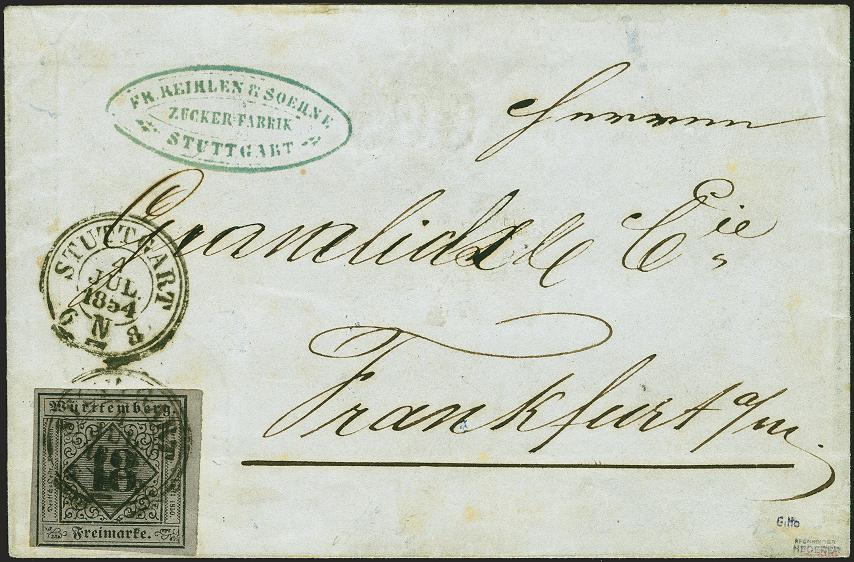 FR. REIHLEN & SOEHNE
ZUCKER-FABRIK
STUTTGART
Herren
Gramlich & Cie
Frankfurt a/m.
STUTTGART
4
JUL.
1854
6 N 8
Württemberg.
18
Freimarke.